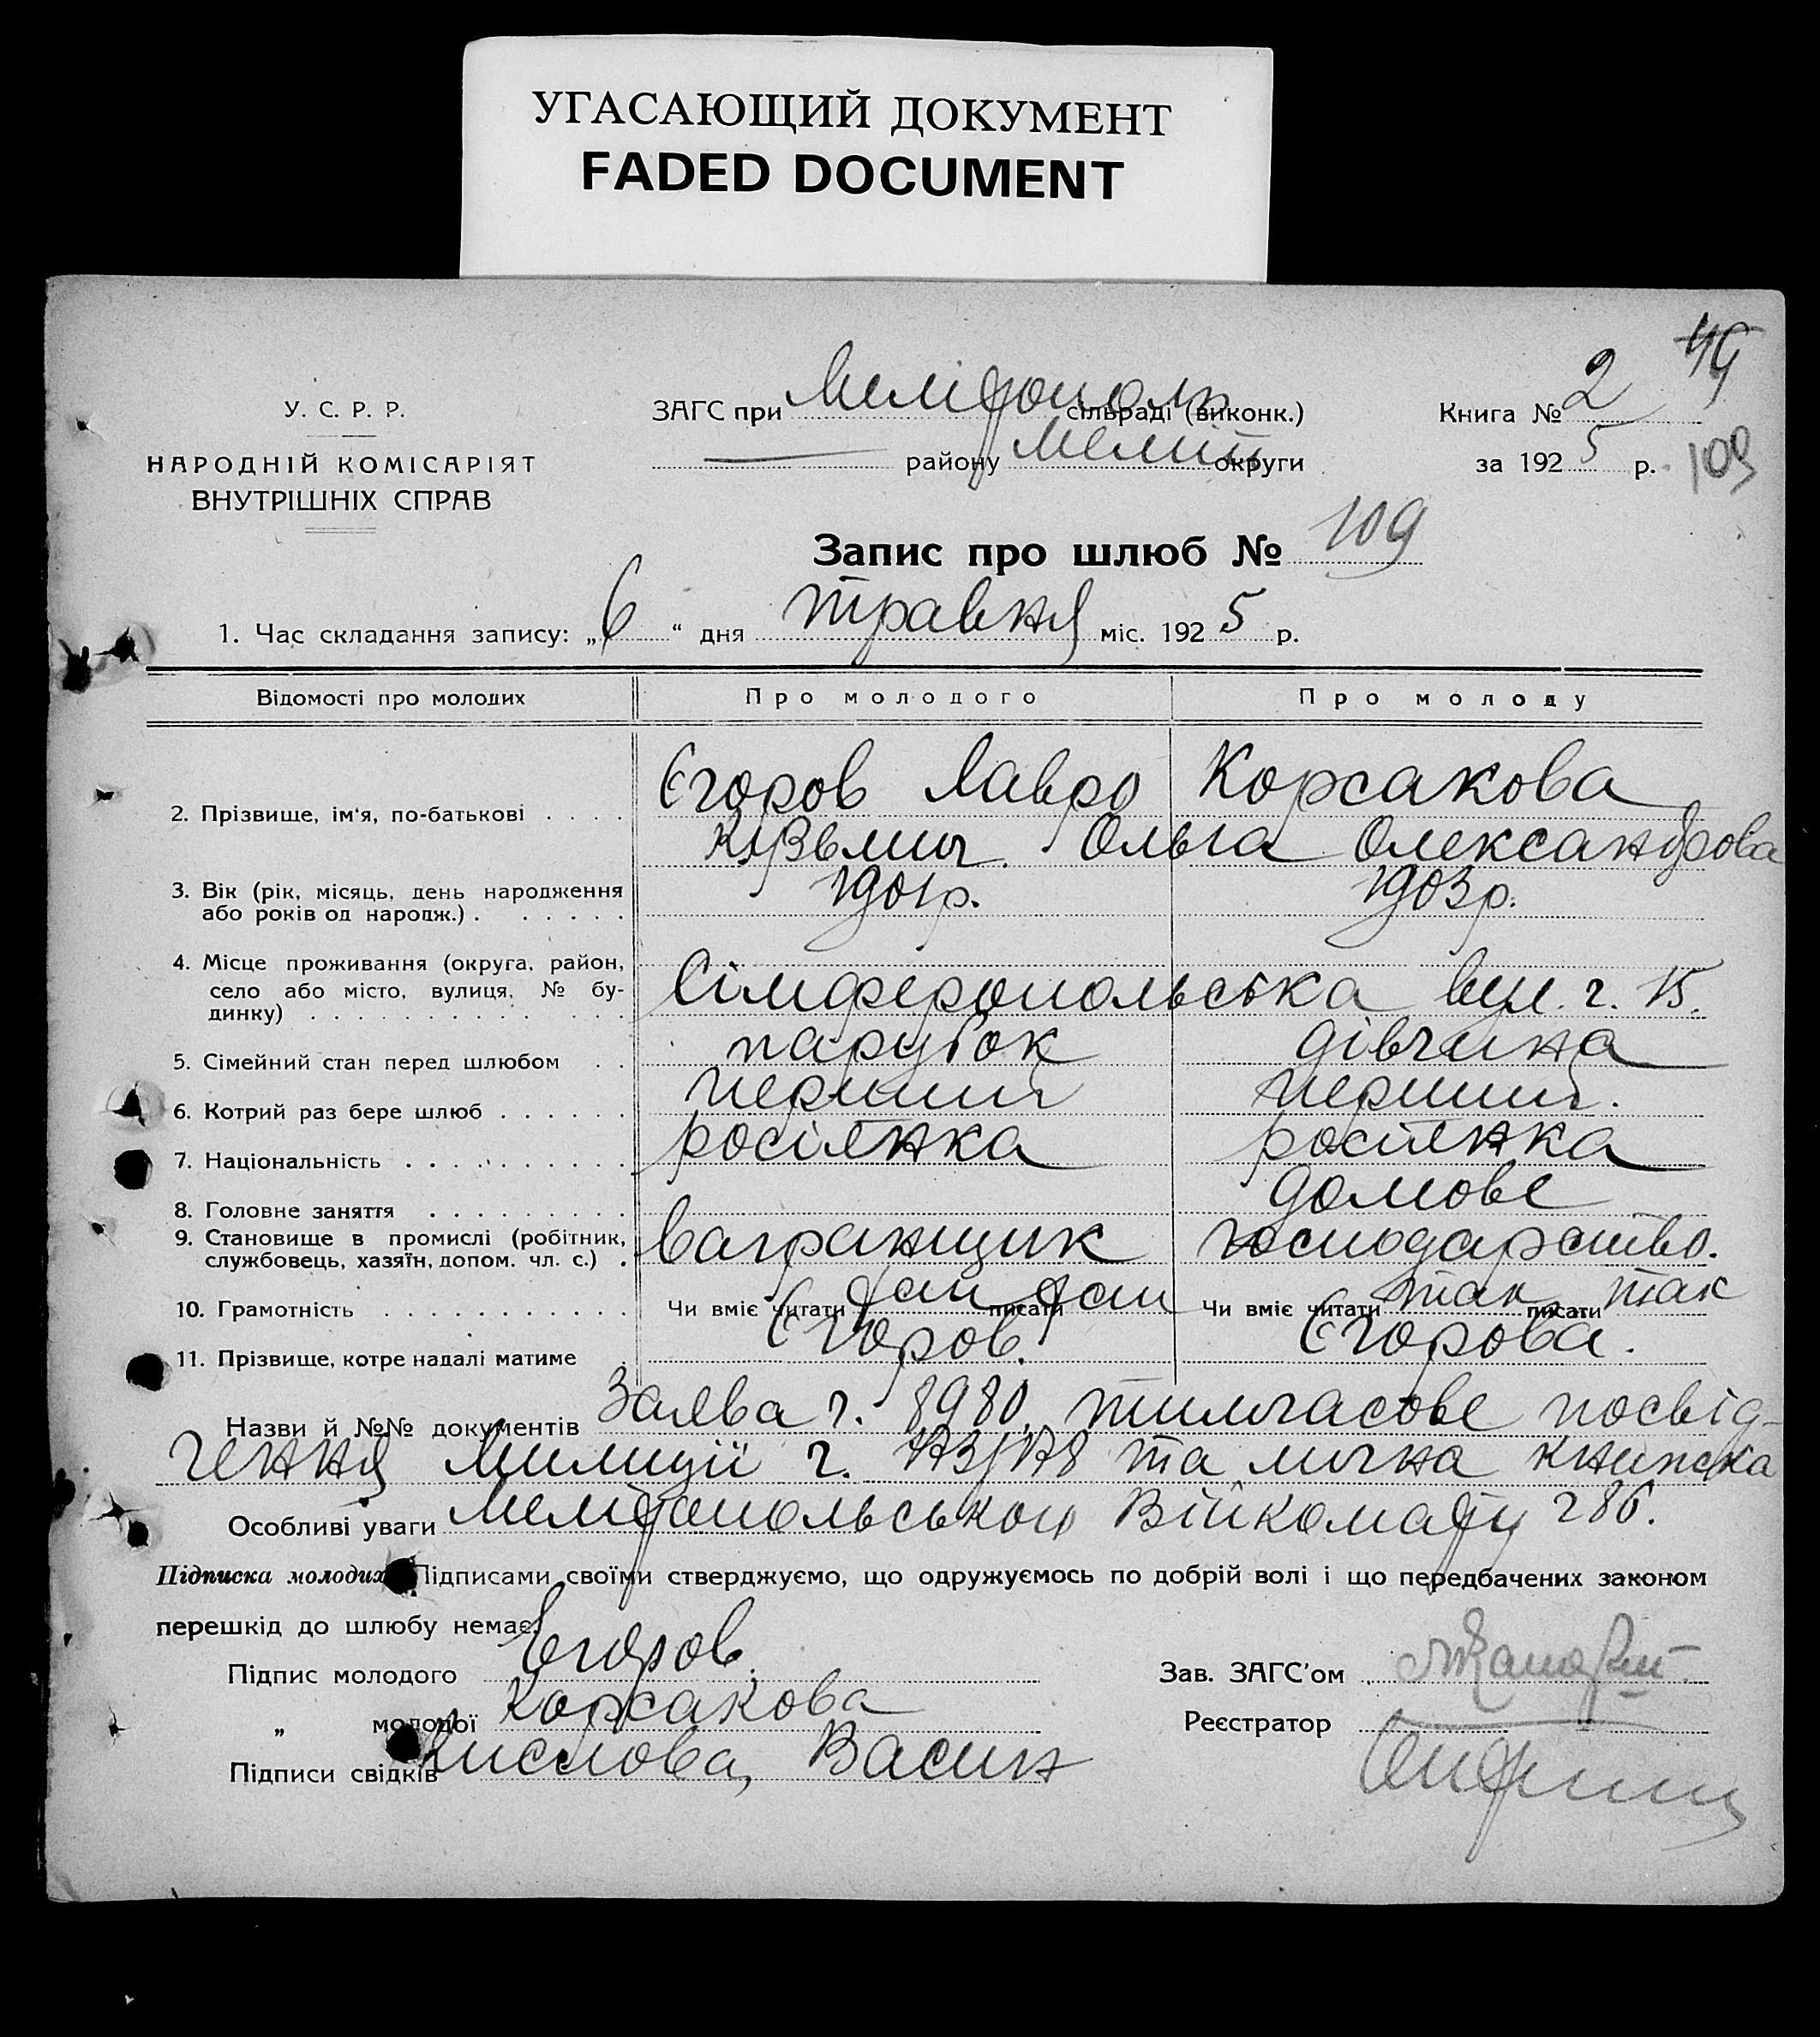 УГАСАЮЩИЙ ДОКУМЕНТ
FADED DOCUMENT
49
У. С. Р. Р.
НАРОДНІЙ КОМІСАРІЯТ
ВНУТРІШНІХ СПРАВ
ЗАГС при Мелітополь сільраді (виконк.)
— району Меліт. округи
Книга № 2
за 1925 р.
109
Запис про шлюб № 109
1. Час складання запису: „6“ дня травня міс. 1925 р.
Відомості про молодих Про молодого Про молоду
2. Прізвище, ім'я, по-батькові . . . . Єгоров Лавро Корсакова
Кузьмич. Ольга Олександрова
3. Вік (рік, місяць, день народження 1901р. 1903р.
або років од народж.) . . . . . .
4. Місце проживання (округа, район,
село або місто, вулиця, № бу- Сімферопольська вул. ч. 15.
динку) . . . . . . . . . . . .
5. Сімейний стан перед шлюбом . . парубок дівчина
6. Котрий раз бере шлюб . . . . . . перший перший.
7. Національність . . . . . . . . . . росіянка росіянка
8. Головне заняття . . . . . . . . . домове
9. Становище в промислі (робітник, вагранщик господарство.
службовець, хазяїн, допом. чл. с.) .
10. Грамотність . . . . . . . . . . . Чи вміє читати так писати так Чи вміє читати так писати так
11. Прізвище, котре надалі матиме Єгоров. Єгорова.
Назви й №№ документів Заява ч. 8980, тимчасове посвід-
чення Милиції ч. та лична книжка
Особливі уваги Мелітопольського Війкомату ч 86.
Підписка молодих Підписами своїми стверджуємо, що одружуємось по добрій волі і що передбачених законом
перешкід до шлюбу немає.
Підпис молодого Егоров.
„ молодої Корсакова
Підписи свідків Кислова, Васин
Зав. ЗАГС'ом
Реєстратор